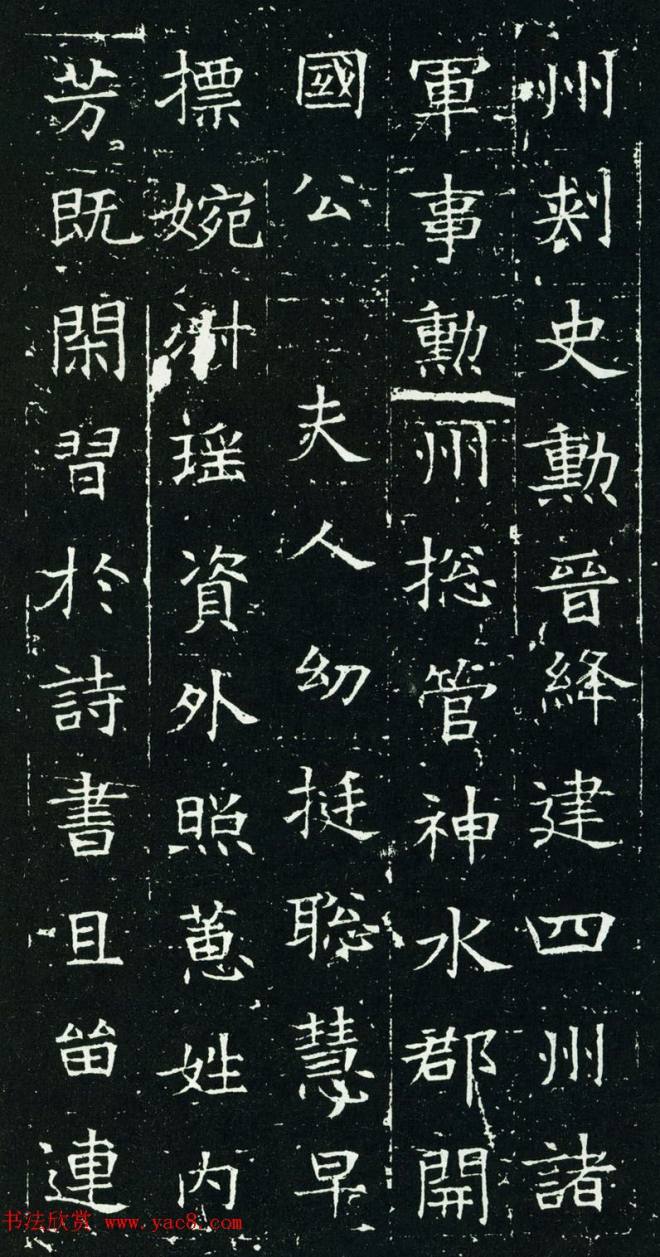 州刺史勲晉絳建四州諸
軍事勲州揔管神水郡開
國公 夫人幼挺聡慧早
摽婉淑瑶資外照蕙姓内
芳既閑習於詩書且留連
书法欣赏 www.yac8.com